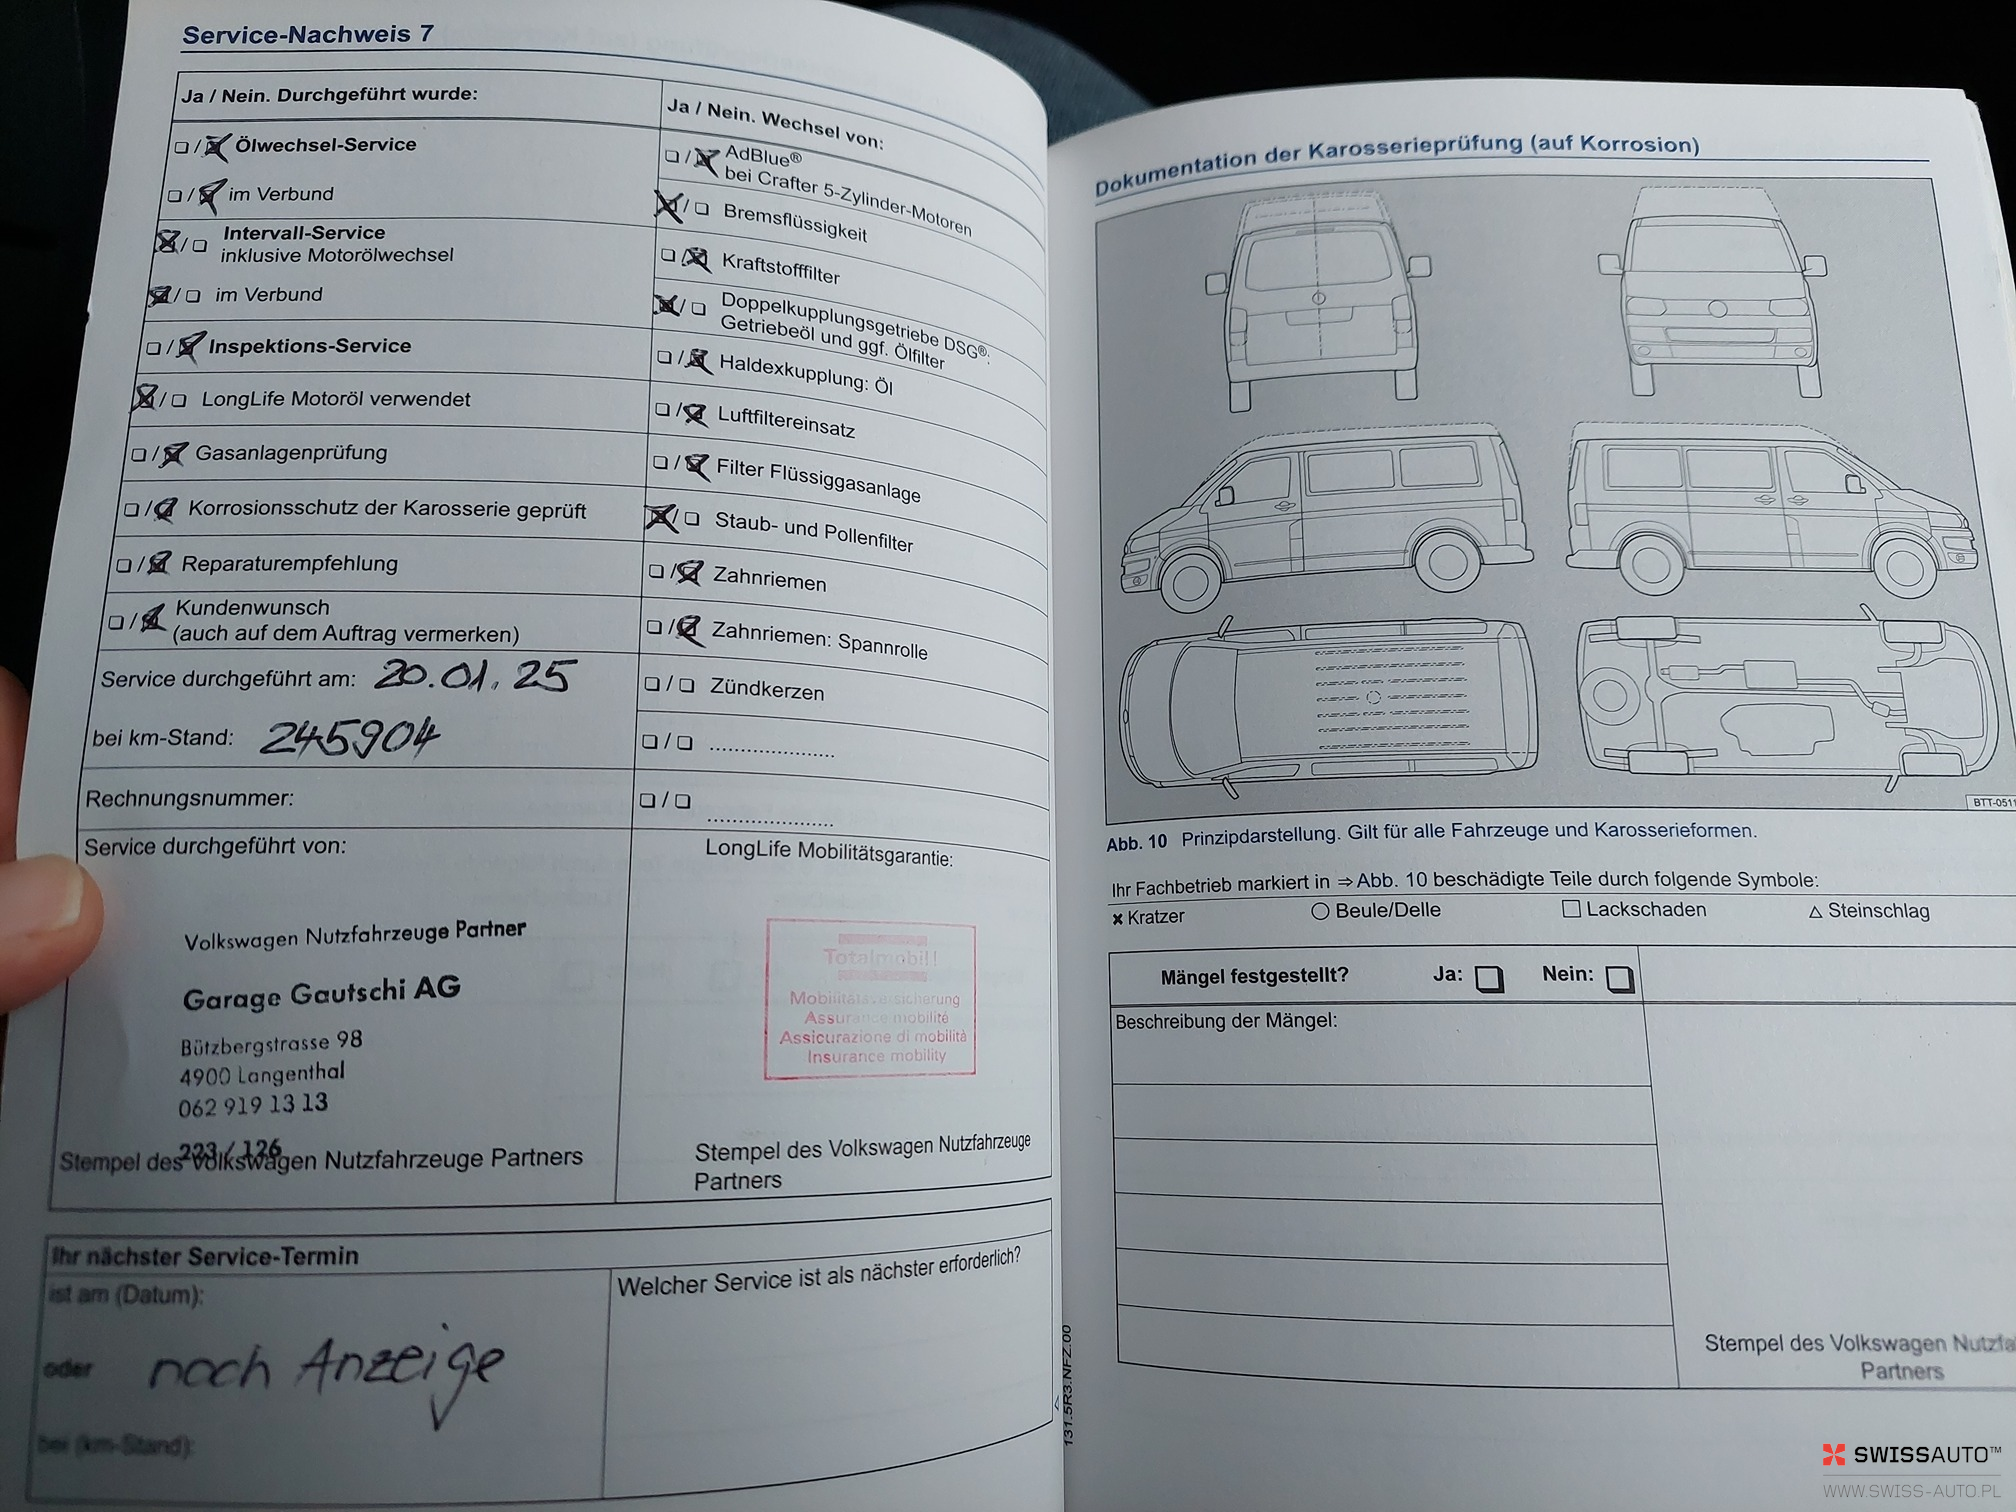 Service-Nachweis 7
Ja / Nein. Durchgeführt wurde:
Ölwechsel-Service
im Verbund
Intervall-Service
inklusive Motorölwechsel
im Verbund
Inspektions-Service
LongLife Motoröl verwendet
Gasanlagenprüfung
Korrosionsschutz der Karosserie geprüft
Reparaturempfehlung
Kundenwunsch
(auch auf dem Auftrag vermerken)
Service durchgeführt am: 20.01.25
bei km-Stand: 245904
Rechnungsnummer:
Service durchgeführt von:
Volkswagen Nutzfahrzeuge Partner
Garage Gautschi AG
Bützbergstrasse 98
4900 Langenthal
062 919 13 13
223 / 126
Stempel des Volkswagen Nutzfahrzeuge Partners
Ja / Nein. Wechsel von:
AdBlue®
bei Crafter 5-Zylinder-Motoren
Bremsflüssigkeit
Kraftstofffilter
Doppelkupplungsgetriebe DSG®:
Getriebeöl und ggf. Ölfilter
Haldexkupplung: Öl
Luftfiltereinsatz
Filter Flüssiggasanlage
Staub- und Pollenfilter
Zahnriemen
Zahnriemen: Spannrolle
Zündkerzen
LongLife Mobilitätsgarantie:
Totalmobil!
Mobilitätsversicherung
Assurance mobilité
Assicurazione di mobilità
Insurance mobility
Stempel des Volkswagen Nutzfahrzeuge
Partners
Ihr nächster Service-Termin
ist am (Datum):
oder noch Anzeige
bei (km-Stand):
Welcher Service ist als nächster erforderlich?
131.5R3.NFZ.00
Dokumentation der Karosserieprüfung (auf Korrosion)
BTT-0511
Abb. 10 Prinzipdarstellung. Gilt für alle Fahrzeuge und Karosserieformen.
Ihr Fachbetrieb markiert in ⇒ Abb. 10 beschädigte Teile durch folgende Symbole:
× Kratzer ○ Beule/Delle □ Lackschaden △ Steinschlag
Mängel festgestellt? Ja: Nein:
Beschreibung der Mängel:
Stempel des Volkswagen Nutzfa
Partners
SWISSAUTO™
WWW.SWISS-AUTO.PL